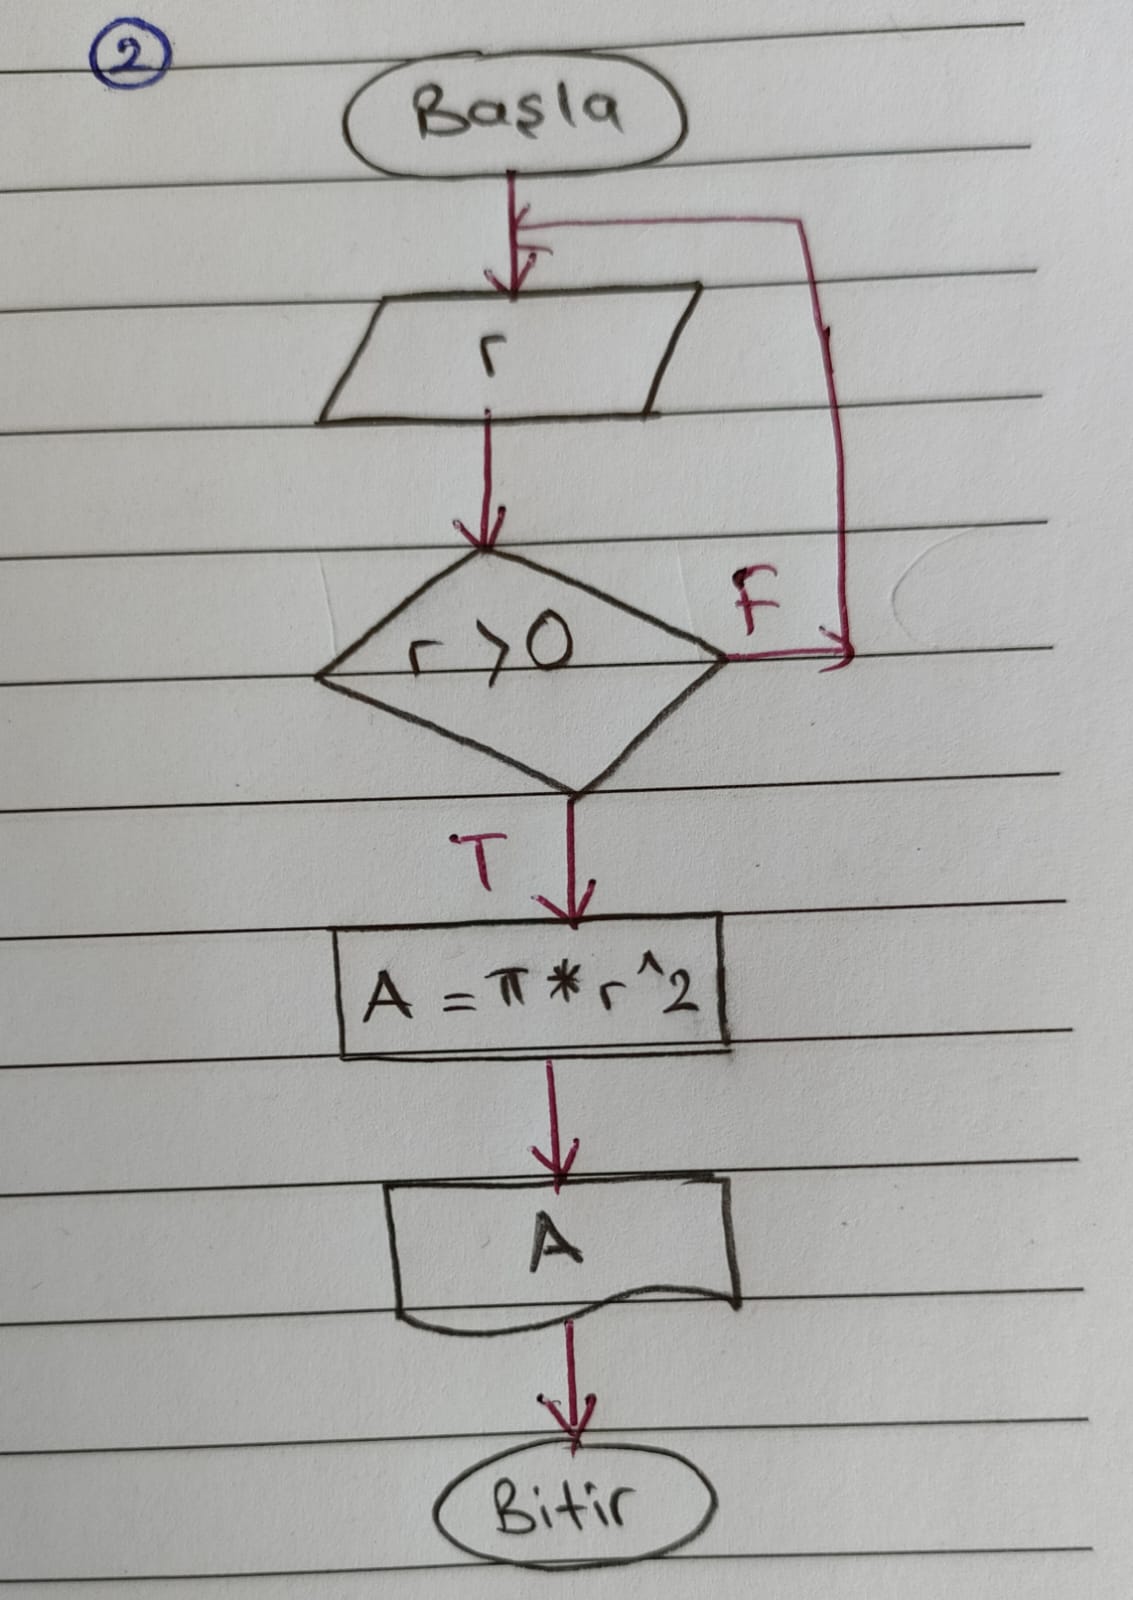 2
Başla
r
r > 0
F
T
A = π * r ^ 2
A
Bitir